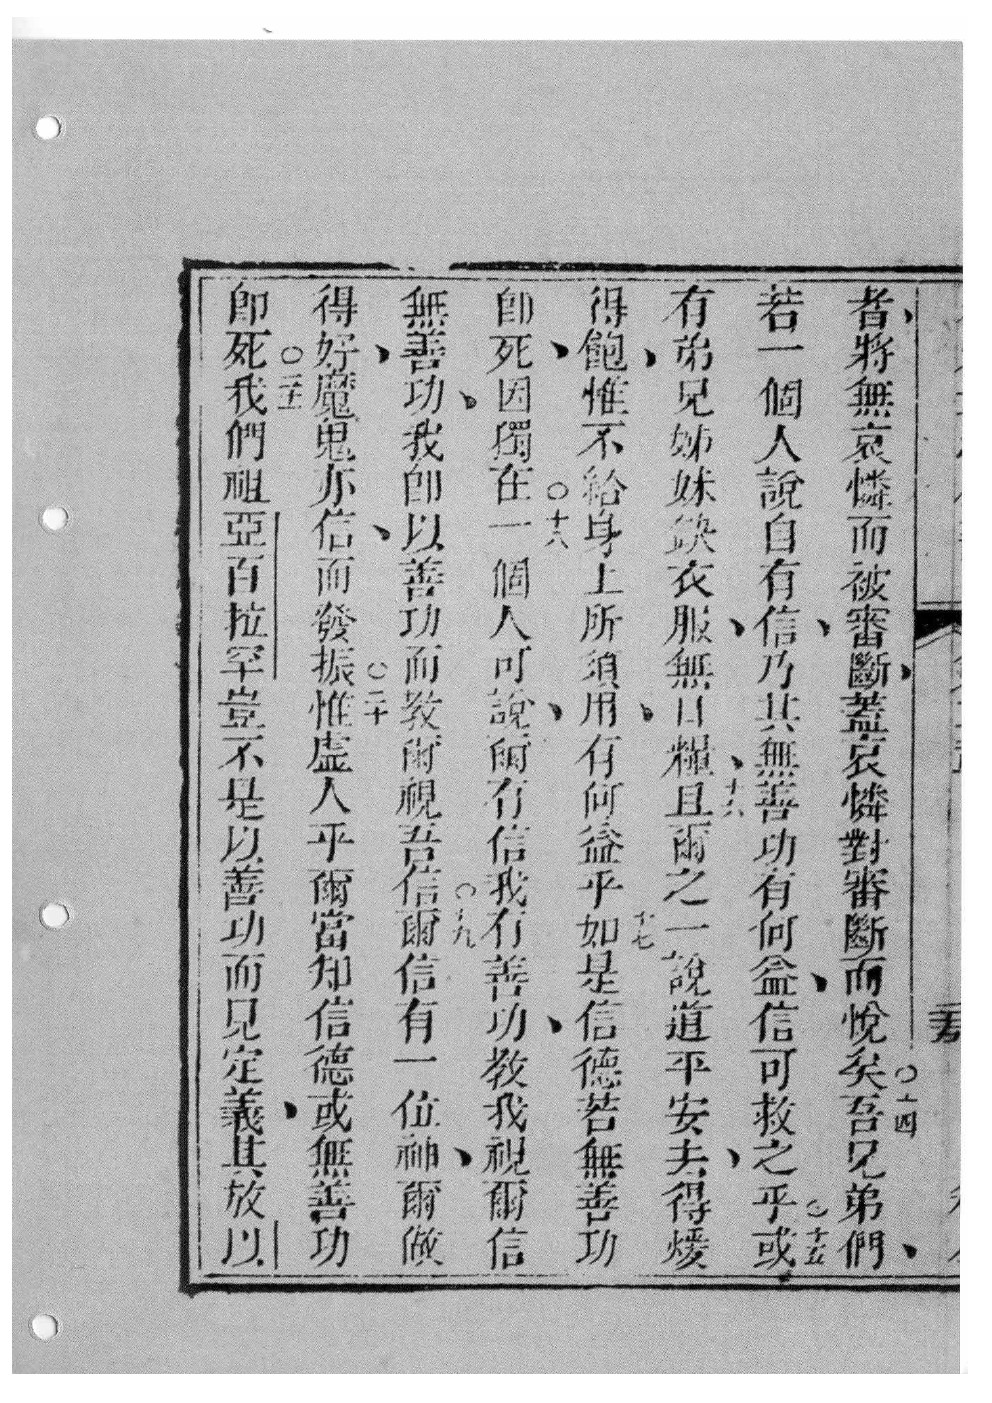 者、將無哀憐而被審斷、蓋哀憐對審斷而悅矣○十四吾兄弟們、
若一個人說自有信、乃其無善功有何益、信可救之乎○十五或
有弟兄姊妹缺衣服、無日糧、十六且爾之一說道平安去、得煖
得飽、惟不給身上所須用、有何益乎十七如是信德若無善功
卽死、因獨在○十八一個人可說、爾有信我有善功、教我視爾信
無善功、我卽以善功而教爾視吾信○十九爾信有一位神、爾做
得好、魔鬼亦信、而發振○二十惟虛人乎爾當知信德或無善功
卽死○二十一我們祖亞百拉罕豈不是以善功而見定義、其放以